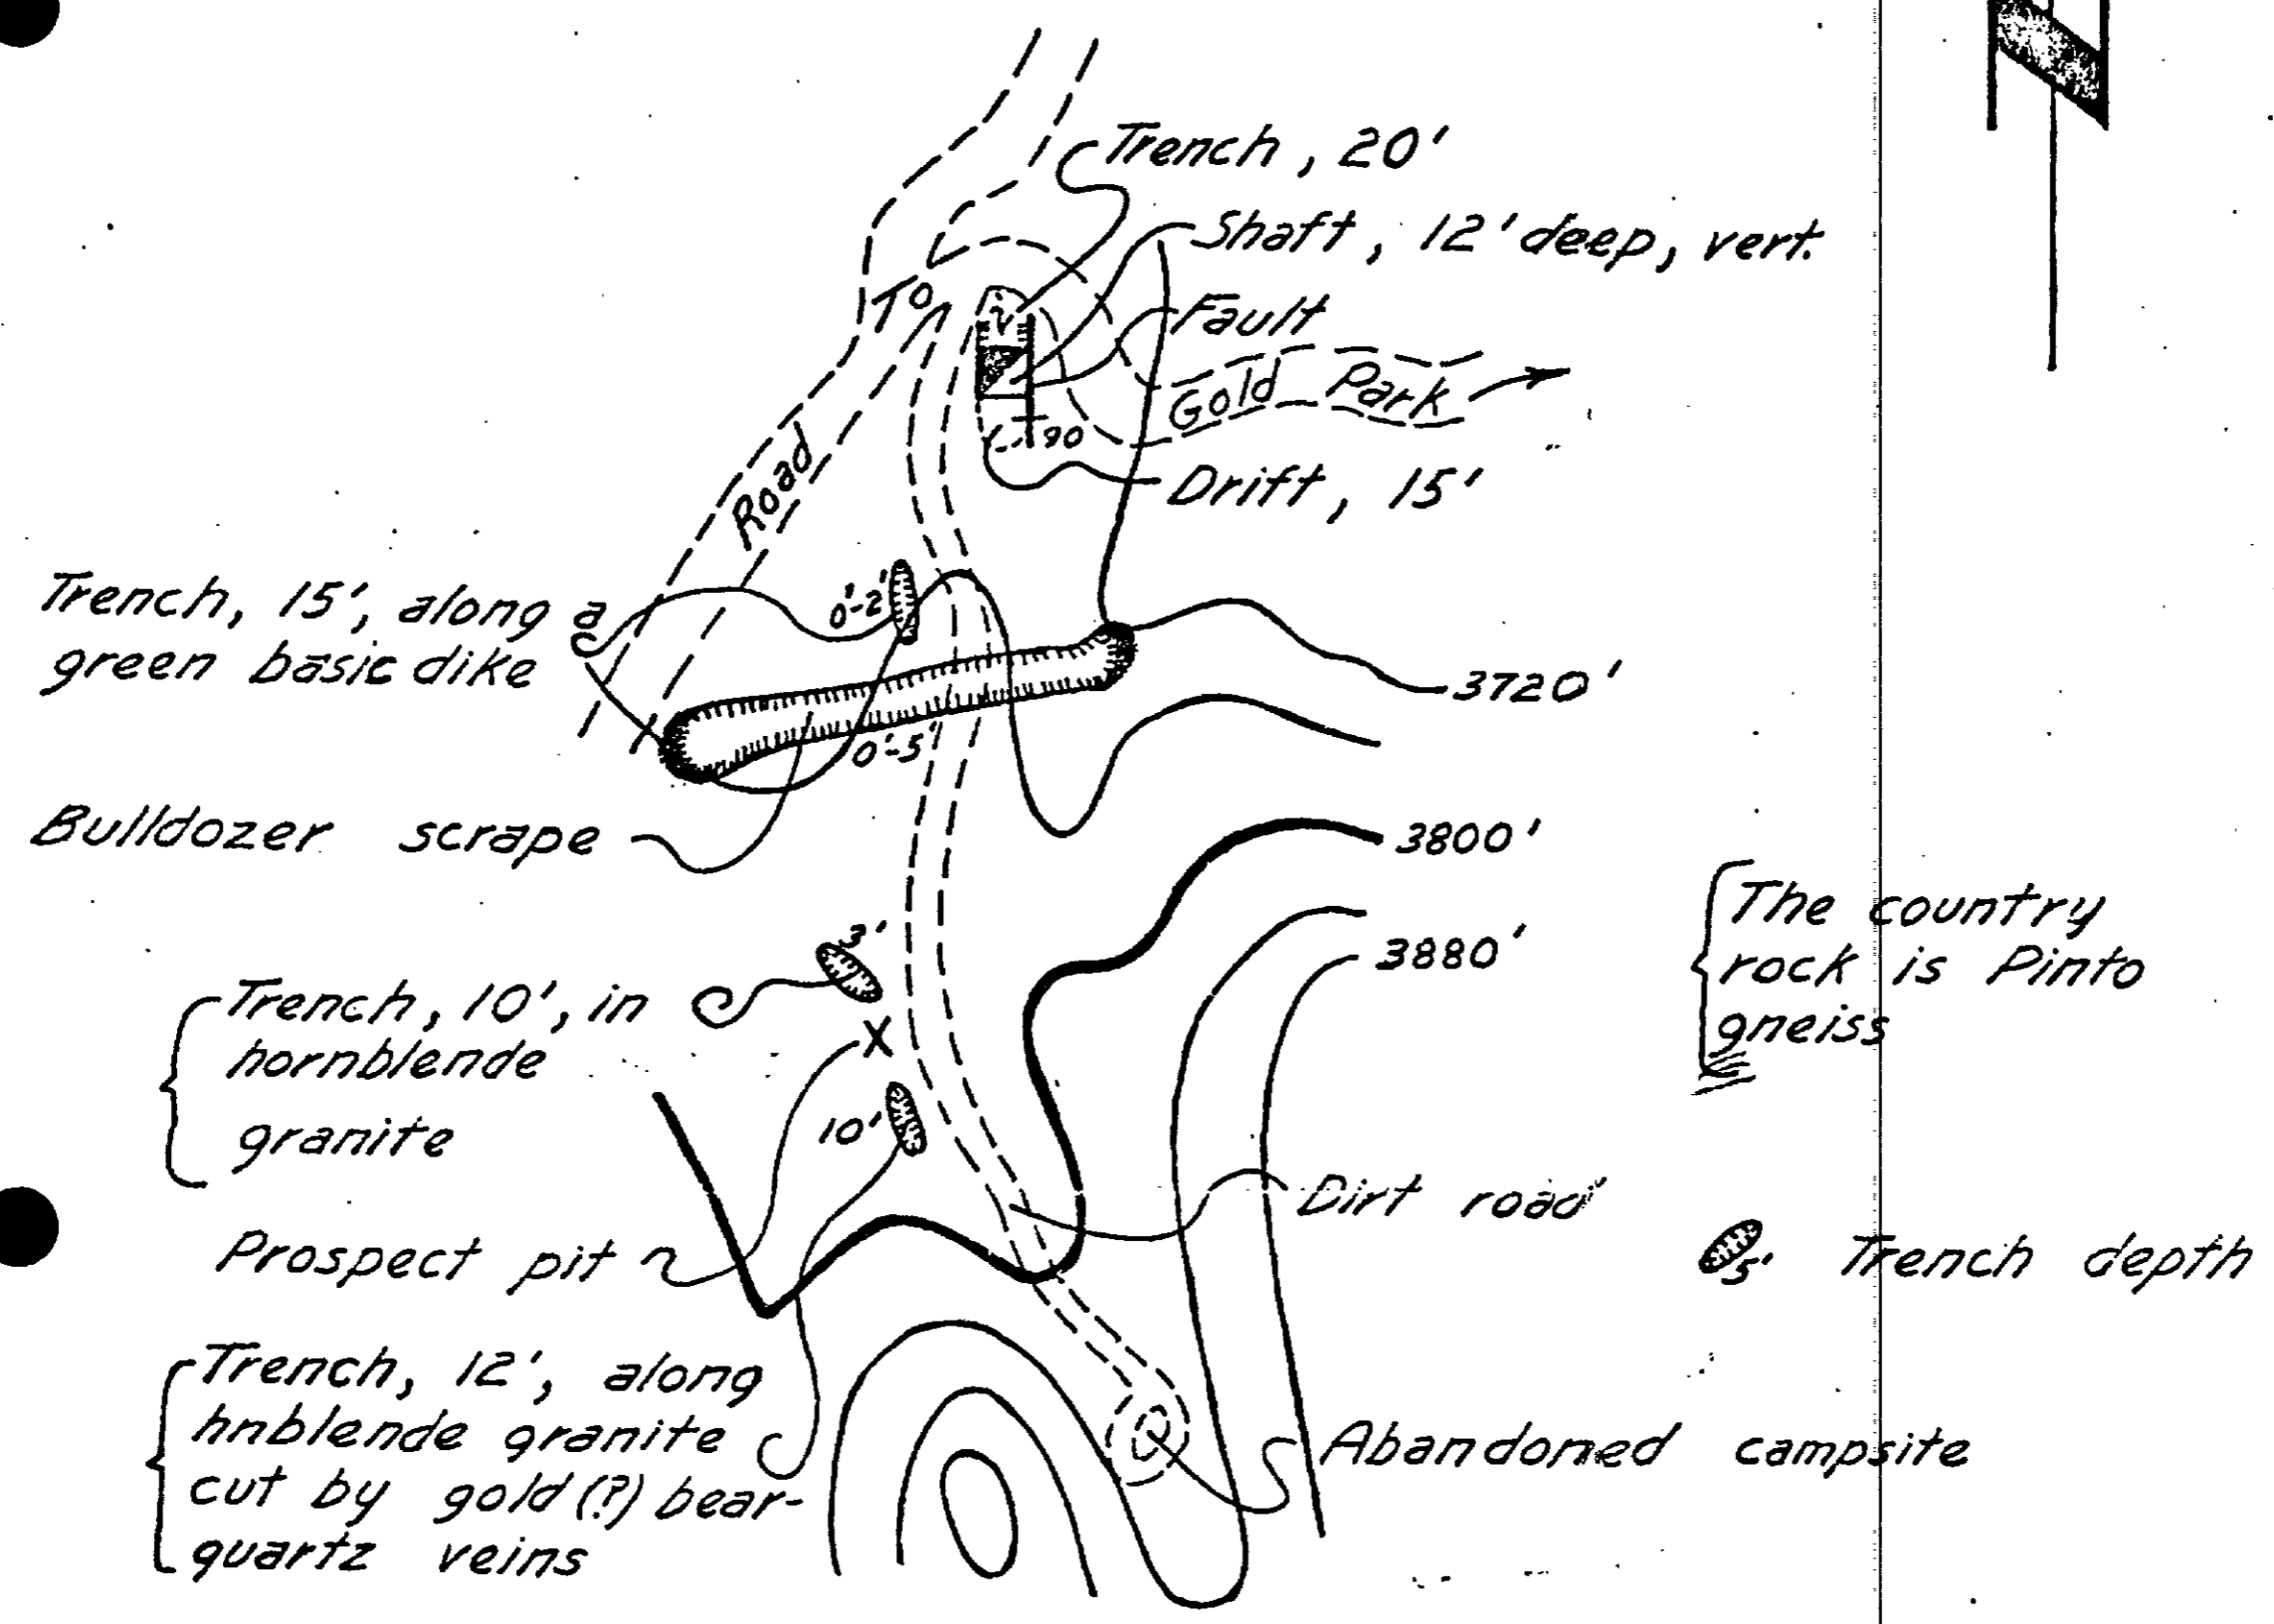 Trench, 20'
Shaft, 12' deep, vert.
To
Fault
Gold Park
90
Drift, 15'
Road
Trench, 15', along a
green basic dike
0'-2'
3720'
0'-5'
Bulldozer scrape
3800'
3880'
The country
rock is Pinto
gneiss
3'
Trench, 10', in
hornblende
granite
X
10'
Dirt road
Prospect pit
5'
Trench depth
Trench, 12', along
hnblende granite
cut by gold(?) bear-
quartz veins
Abandoned campsite